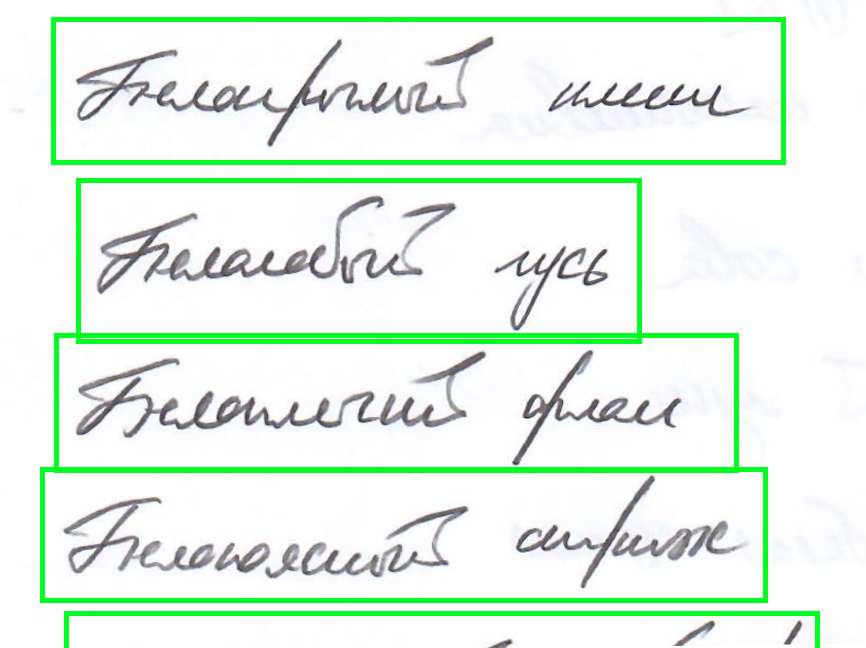 Белокрылый клест
Белолобый гусь
Белоплечий орлан
Белопоясный стриж